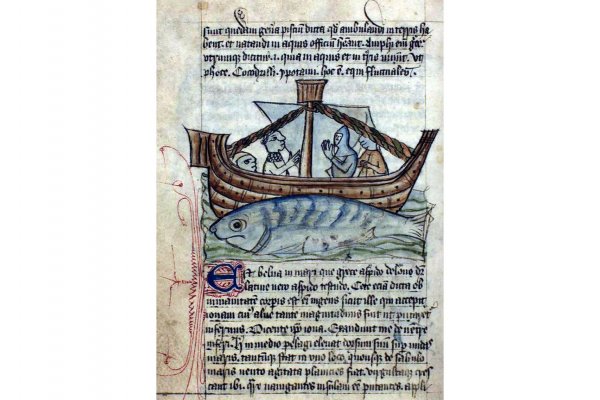 sunt quedam gena pisciu dicta qd ambulandi in terris ha
bent. et natandi in aquis officiu heant. Amphi em grec
utrumque dicitur .i. quia in aquis et in tris uiuut. ut
phoce. Cocodrilli. ypotami. hoc e. equi fluctuales.
Est belua in mari que grece aspido delone dr
latine uero aspido testudo. Cete eciam dicta ob
inmanitatem corpis est em ingens sicut ille qui excepit
ionam cui aluus tante magnitudinis fuit ut putaret
infernus. Dicente ipo iona. Exaudiuit me de uentre
inferi. H in medio pelagi eleuat dorsum suum sup undas
maris. tantumque stat in uno loco. quousque de sabulo
maris uento agitata planicies fiat. uirgultaque cres
cant ibi. Qre nauigantes insulam ee putantes. appli